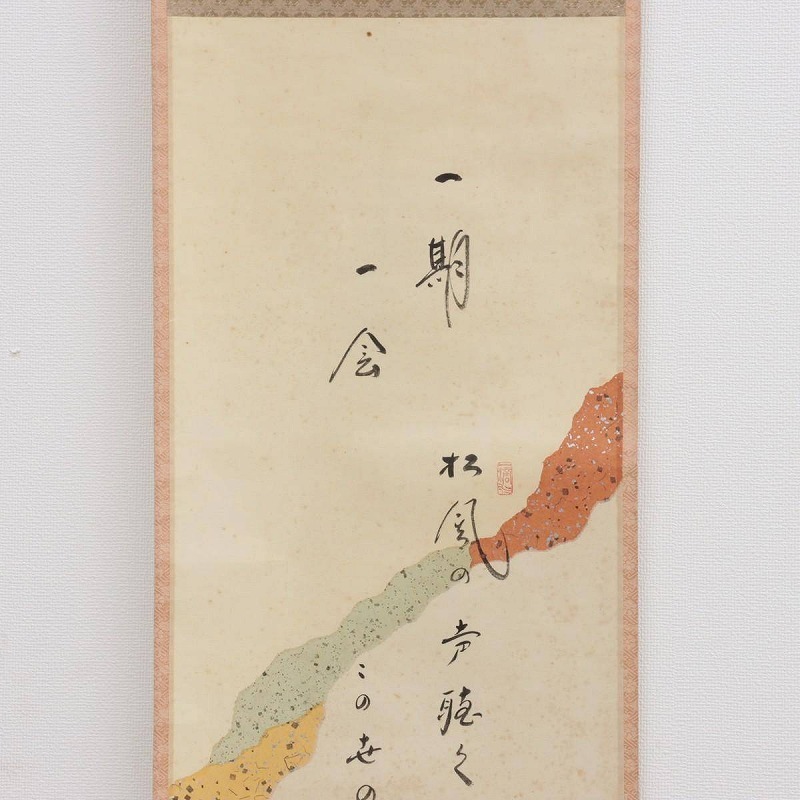 一期
一会
松風の声聴く
この世の